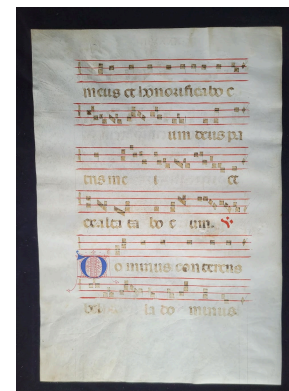 meus et honorificabo e
um deus pa
tris me i et
exalta ta bo e um. V.
Dominus conterens
bel la do minus